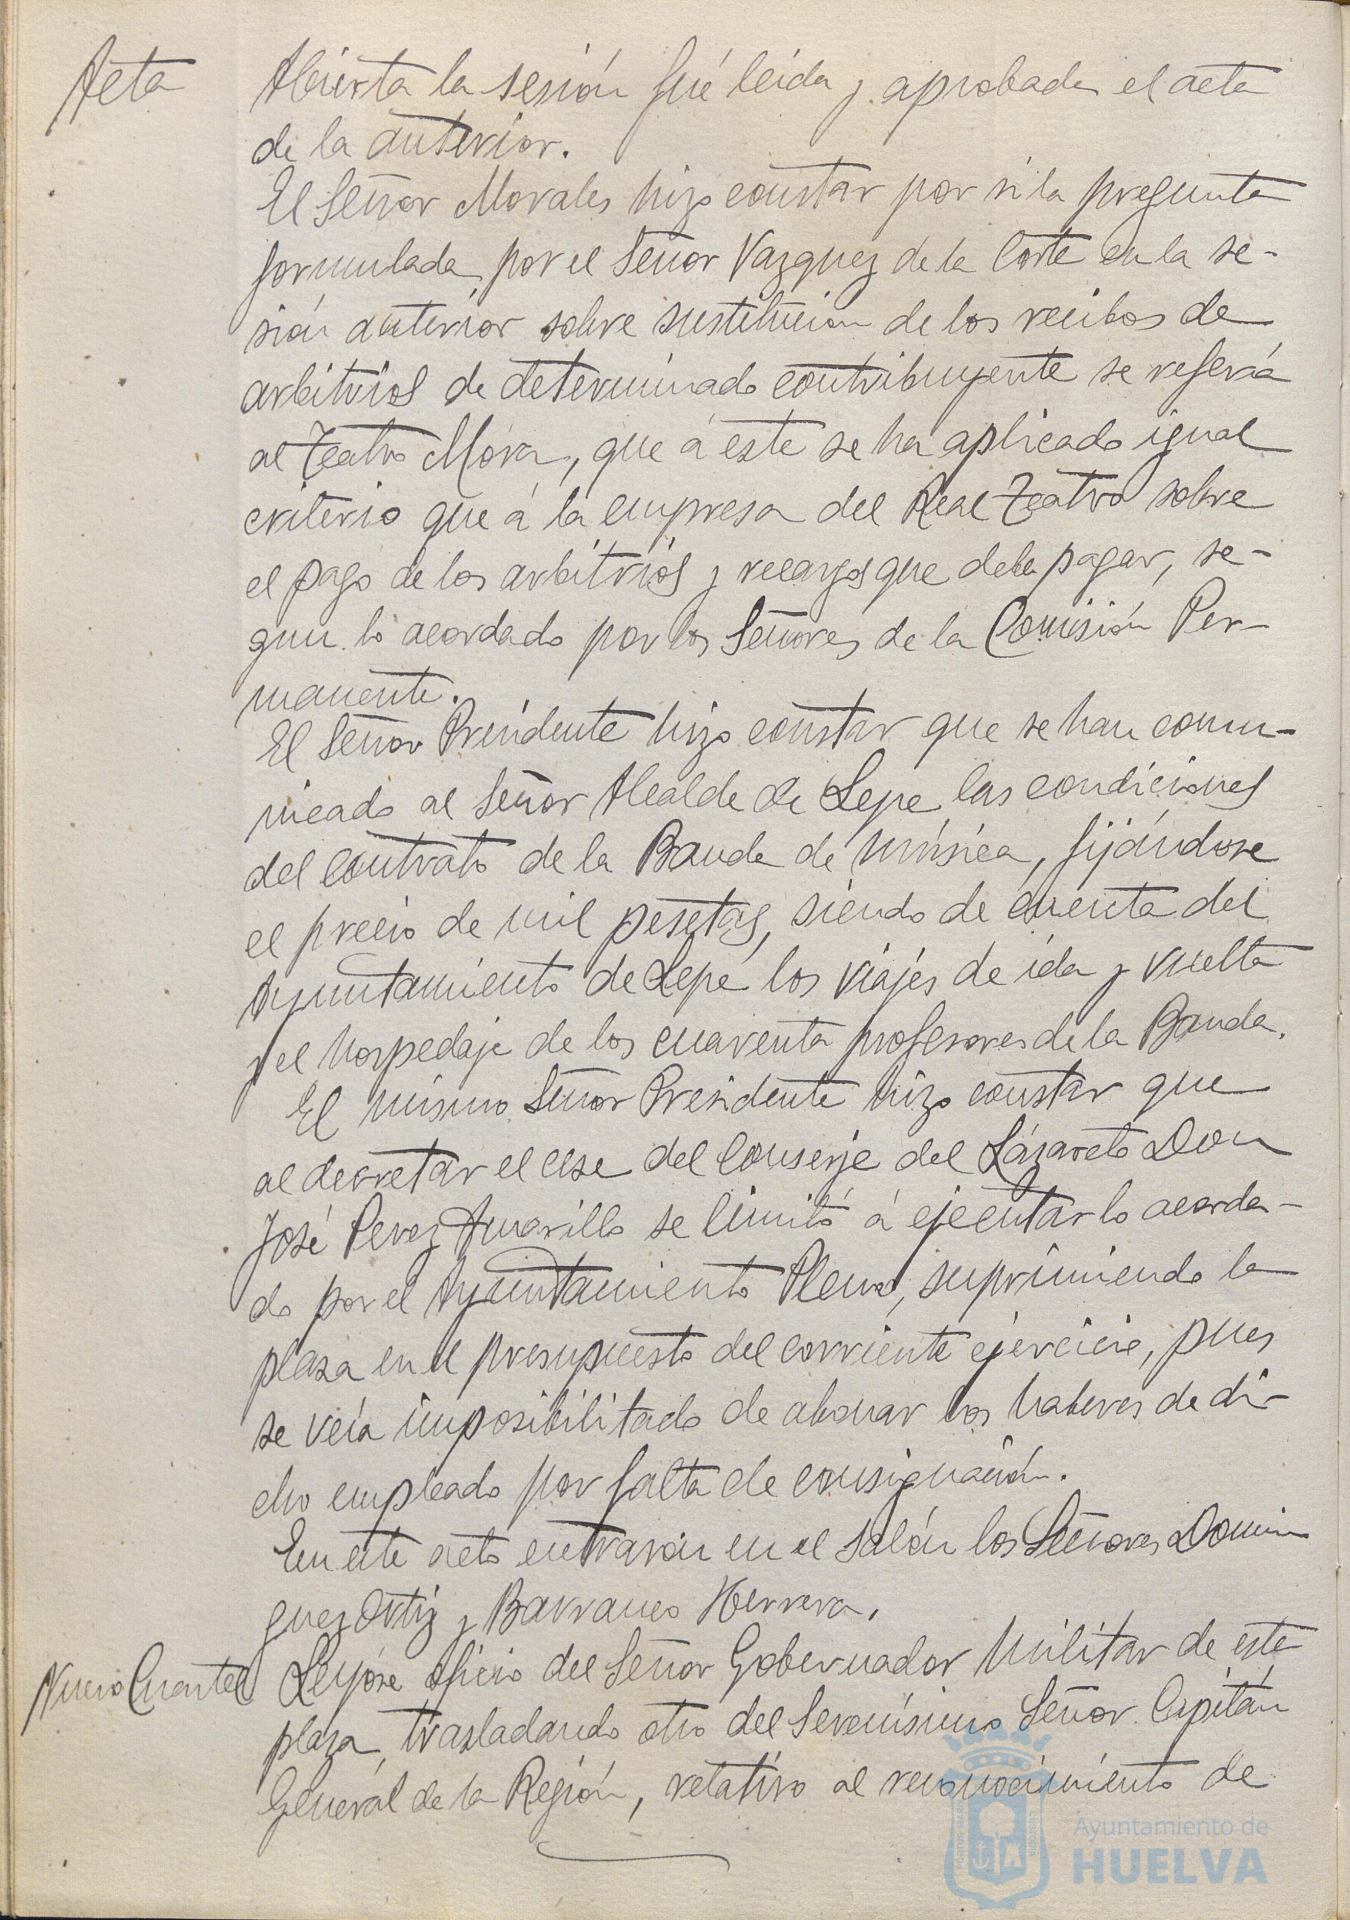 Acta
Abierta la sesión fué leida y aprobada el acta
de la anterior.
El Señor Morales hizo constar por si la pregunta
formulada por el Señor Vazquez de la Corte en la se-
sión anterior sobre sustitucion de los recibos de
arbitrios de determinado contribuyente se refería
al Teatro Mora, que á este se ha aplicado igual
criterio que á la empresa del Real Teatro sobre
el pago de los arbitrios y recargos que debe pagar, se-
gun lo acordado por los Señores de la Comisión Per-
manente.
El Señor Presidente hizo constar que se han comu-
nicado al Señor Alcalde de Lepe las condiciones
del contrato de la Banda de música, fijándose
el precio de mil pesetas, siendo de cuenta del
Ayuntamiento de Lepe los viajes de ida y vuelta
y el hospedaje de los cuarenta profesores de la Banda.
El mismo Señor Presidente hizo constar que
al decretar el cese del Conserje del Lázareto Don
José Perez Amarillo se limitó á ejecutar lo acorda-
do por el Ayuntamiento Pleno, suprimiendo la
plaza en el presupuesto del corriente ejercicio, pues
se veía imposibilitado de abonar los haberes de di-
cho empleado por falta de consignación.
En este acto entraron en el salón los Señores Domin
guez Ortiz y Barranco Herrera.
Nuevo Cuartel
Leyóse oficio del Señor Gobernador Militar de este
plaza, trasladando otro del Serenísimo Señor Capitán
General de la Región, relativo al reconocimiento de
Ayuntamiento de
HUELVA